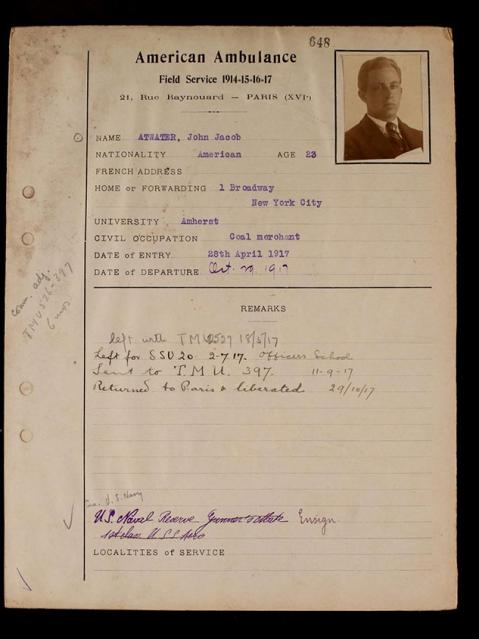 648
American Ambulance
Field Service 1914-15-16-17
21, Rue Raynouard — PARIS (XVIe)
NAME ATWATER, John Jacob
NATIONALITY American AGE 23
FRENCH ADDRESS
HOME or FORWARDING 1 Broadway
New York City
UNIVERSITY Amherst
CIVIL OCCUPATION Coal merchant
DATE of ENTRY 28th April 1917
DATE of DEPARTURE Oct. 29, 1917
Com. adj.
TMU 526-397
6 mos
REMARKS
left with TMU 527 18/5/17
Left for SSU 20 2-7-17. Officers School
Sent to T.M.U. 397. 11-9-17
Returned to Paris & liberated. 29/10/17
U.S. Navy
U.S. Naval Reserve Gunner's Mate Ensign
1st class U.S.S.
LOCALITIES of SERVICE